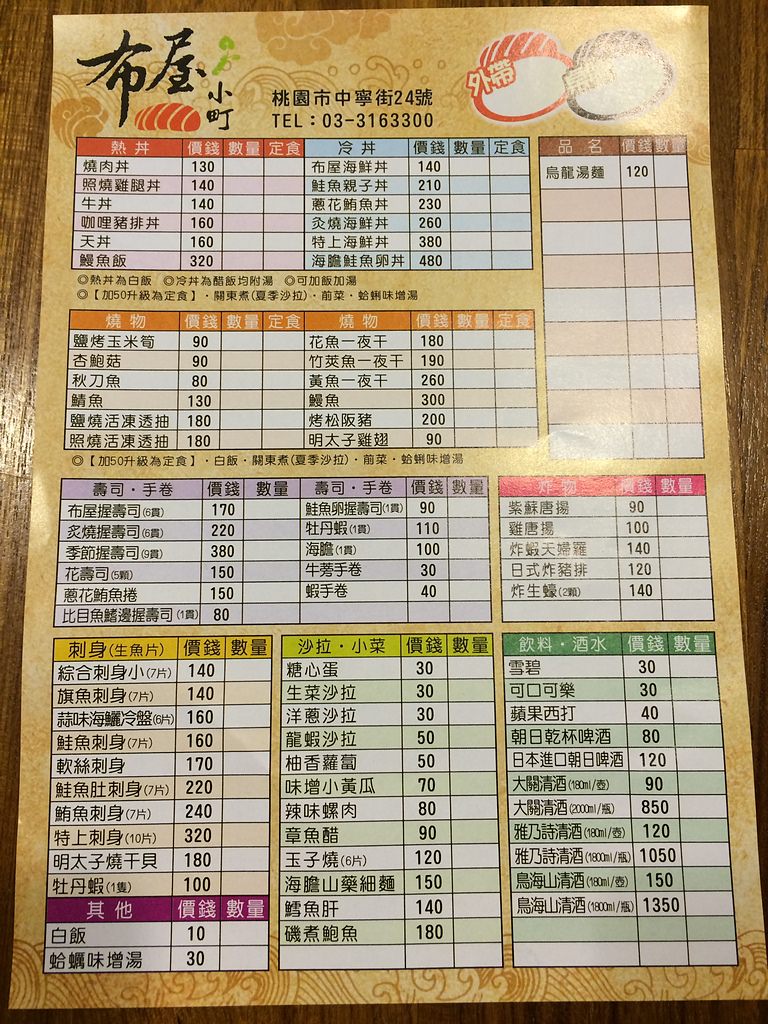 布屋
小町
桃園市中寧街24號
TEL：03-3163300
外帶
熱丼 價錢 數量 定食
燒肉丼 130
照燒雞腿丼 140
牛丼 140
咖哩豬排丼 160
天丼 160
鰻魚飯 320
冷丼 價錢 數量 定食
布屋海鮮丼 140
鮭魚親子丼 210
蔥花鮪魚丼 230
炙燒海鮮丼 260
特上海鮮丼 380
海膽鮭魚卵丼 480
品名 價錢 數量
烏龍湯麵 120
◎熱丼為白飯 ◎冷丼為醋飯均附湯 ◎可加飯加湯
◎【加50升級為定食】・關東煮(夏季沙拉)・前菜・蛤蜊味增湯
燒物 價錢 數量 定食
鹽烤玉米筍 90
杏鮑菇 90
秋刀魚 80
鯖魚 130
鹽燒活凍透抽 180
照燒活凍透抽 180
燒物 價錢 數量 定食
花魚一夜干 180
竹莢魚一夜干 190
黃魚一夜干 260
鰻魚 300
烤松阪豬 200
明太子雞翅 90
◎【加50升級為定食】・白飯・關東煮(夏季沙拉)・前菜・蛤蜊味增湯
壽司・手卷 價錢 數量
布屋握壽司(6貫) 170
炙燒握壽司(6貫) 220
季節握壽司(9貫) 380
花壽司(5顆) 150
蔥花鮪魚捲 150
比目魚鰭邊握壽司(1貫) 80
壽司・手卷 價錢 數量
鮭魚卵握壽司(1貫) 90
牡丹蝦(1貫) 110
海膽(1貫) 100
牛蒡手卷 30
蝦手卷 40
炸物 價錢 數量
紫蘇唐揚 90
雞唐揚 100
炸蝦天婦羅 140
日式炸豬排 120
炸生蠔(2顆) 140
刺身(生魚片) 價錢 數量
綜合刺身小(7片) 140
旗魚刺身(7片) 140
蒜味海鱺冷盤(6片) 160
鮭魚刺身(7片) 160
軟絲刺身 170
鮭魚肚刺身(7片) 220
鮪魚刺身(7片) 240
特上刺身(10片) 320
明太子燒干貝 180
牡丹蝦(1隻) 100
其他 價錢 數量
白飯 10
蛤蠣味增湯 30
沙拉・小菜 價錢 數量
糖心蛋 30
生菜沙拉 30
洋蔥沙拉 30
龍蝦沙拉 50
柚香蘿蔔 50
味增小黃瓜 70
辣味螺肉 80
章魚醋 90
玉子燒(6片) 120
海膽山藥細麵 150
鱈魚肝 140
磯煮鮑魚 180
飲料・酒水 價錢 數量
雪碧 30
可口可樂 30
蘋果西打 40
朝日乾杯啤酒 80
日本進口朝日啤酒 120
大關清酒(180ml/壺) 90
大關清酒(2000ml/瓶) 850
雅乃詩清酒(180ml/壺) 120
雅乃詩清酒(1800ml/瓶) 1050
鳥海山清酒(180ml/壺) 150
鳥海山清酒(1800ml/瓶) 1350